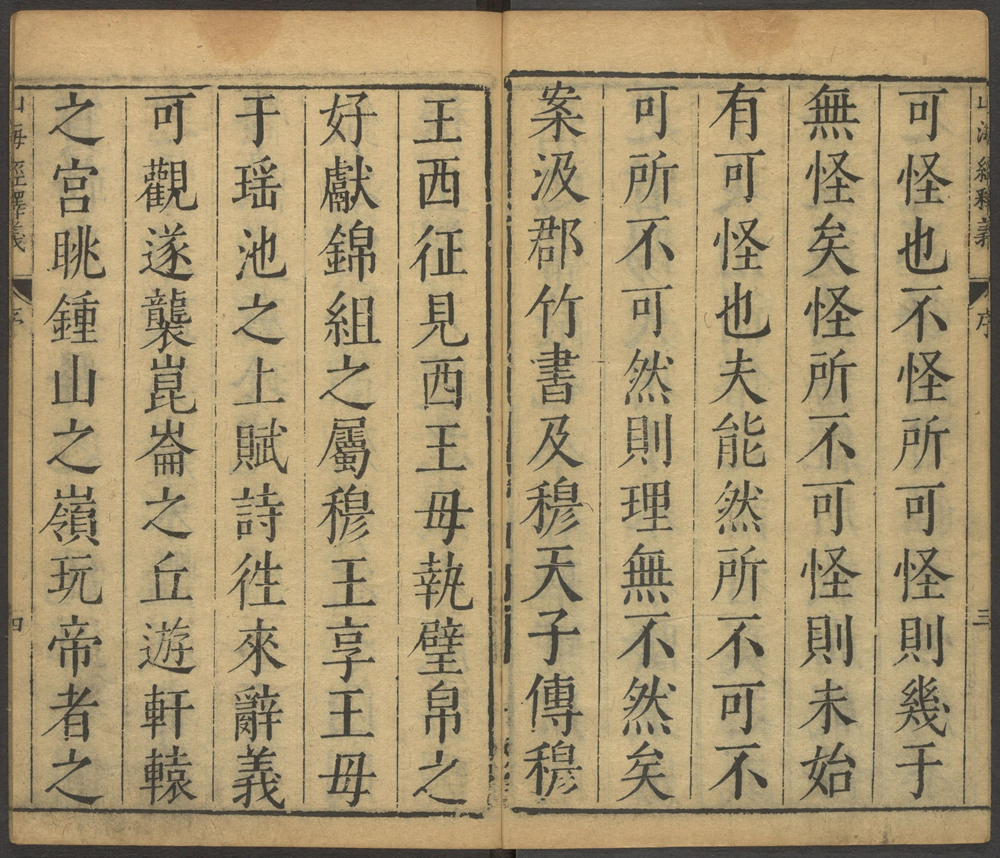 山海經釋義 序 三
可怪也不怪所可怪則幾于
無怪矣怪所不可怪則未始
有可怪也夫能然所不可不
可所不可然則理無不然矣
案汲郡竹書及穆天子傳穆
王西征見西王母執璧帛之
好獻錦組之屬穆王享王母
于瑶池之上賦詩徃來辭義
可觀遂襲崑崙之丘遊軒轅
之宫眺鍾山之嶺玩帝者之
山海經釋義 序 四